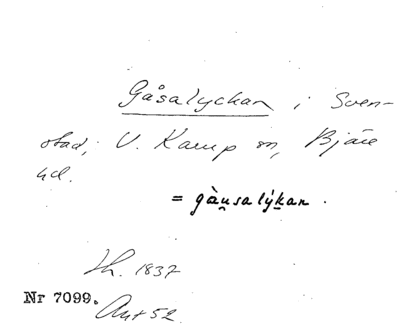 Gåsalyckan i Sven-
stad, V. Karup sn, Bjäre
hd.
= gàu̯salýkan.
Lh. 1837
Nr 7099.
Ant 52